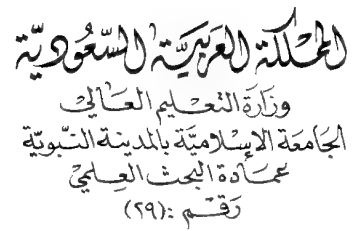 المملكة العربيَّة السَّعُوديّة
وزَارَة التعليم العَالي
الجَامعَة الإسْلاميَّة بالمدينة النَّبويّة
عمَادة البحث العِلمي
رَقم : (٢٩)